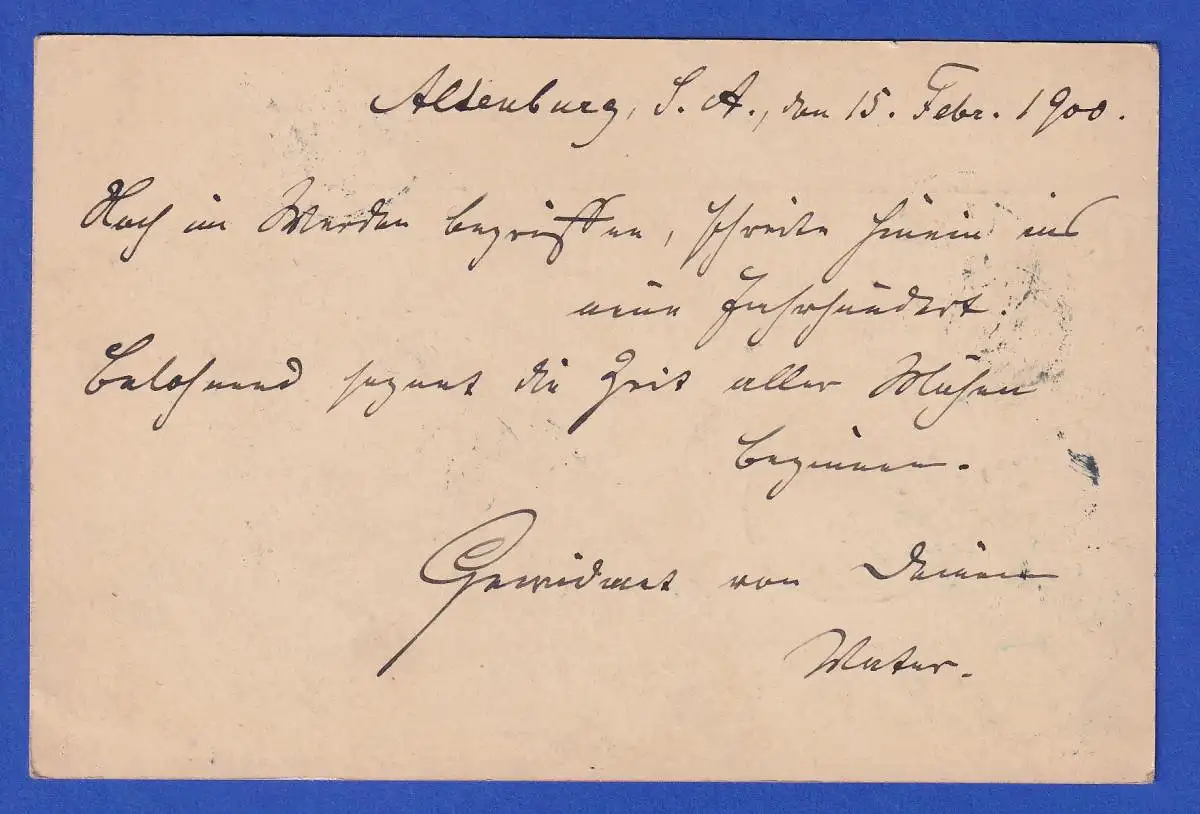 Altenburg, S. A., den 15. Febr. 1900.
Noch im Werden begriffen, schreite hinein ins
neue Jahrhundert.
Belohnend segnet die Zeit aller Mühen
beginnen.
Gewidmet von Deinem
Vater.